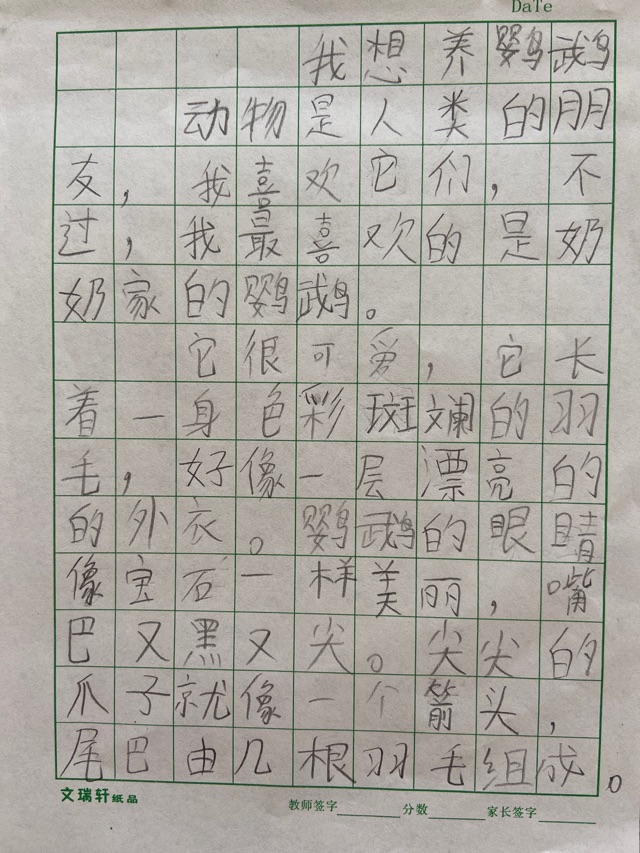 DaTe
我想养鹦鹉
动物是人类的朋
友，我喜欢它们，不
过，我最喜欢的是奶
奶家的鹦鹉。
它很可爱，它长
着一身色彩斑斓的羽
毛，好像一层漂亮的
的外衣。鹦鹉的眼睛
像宝石一样美丽，嘴
巴又黑又尖。尖尖的
爪子就像一个箭头，
尾巴由几根羽毛组成。
文瑞轩纸品 教师签字 分数 家长签字